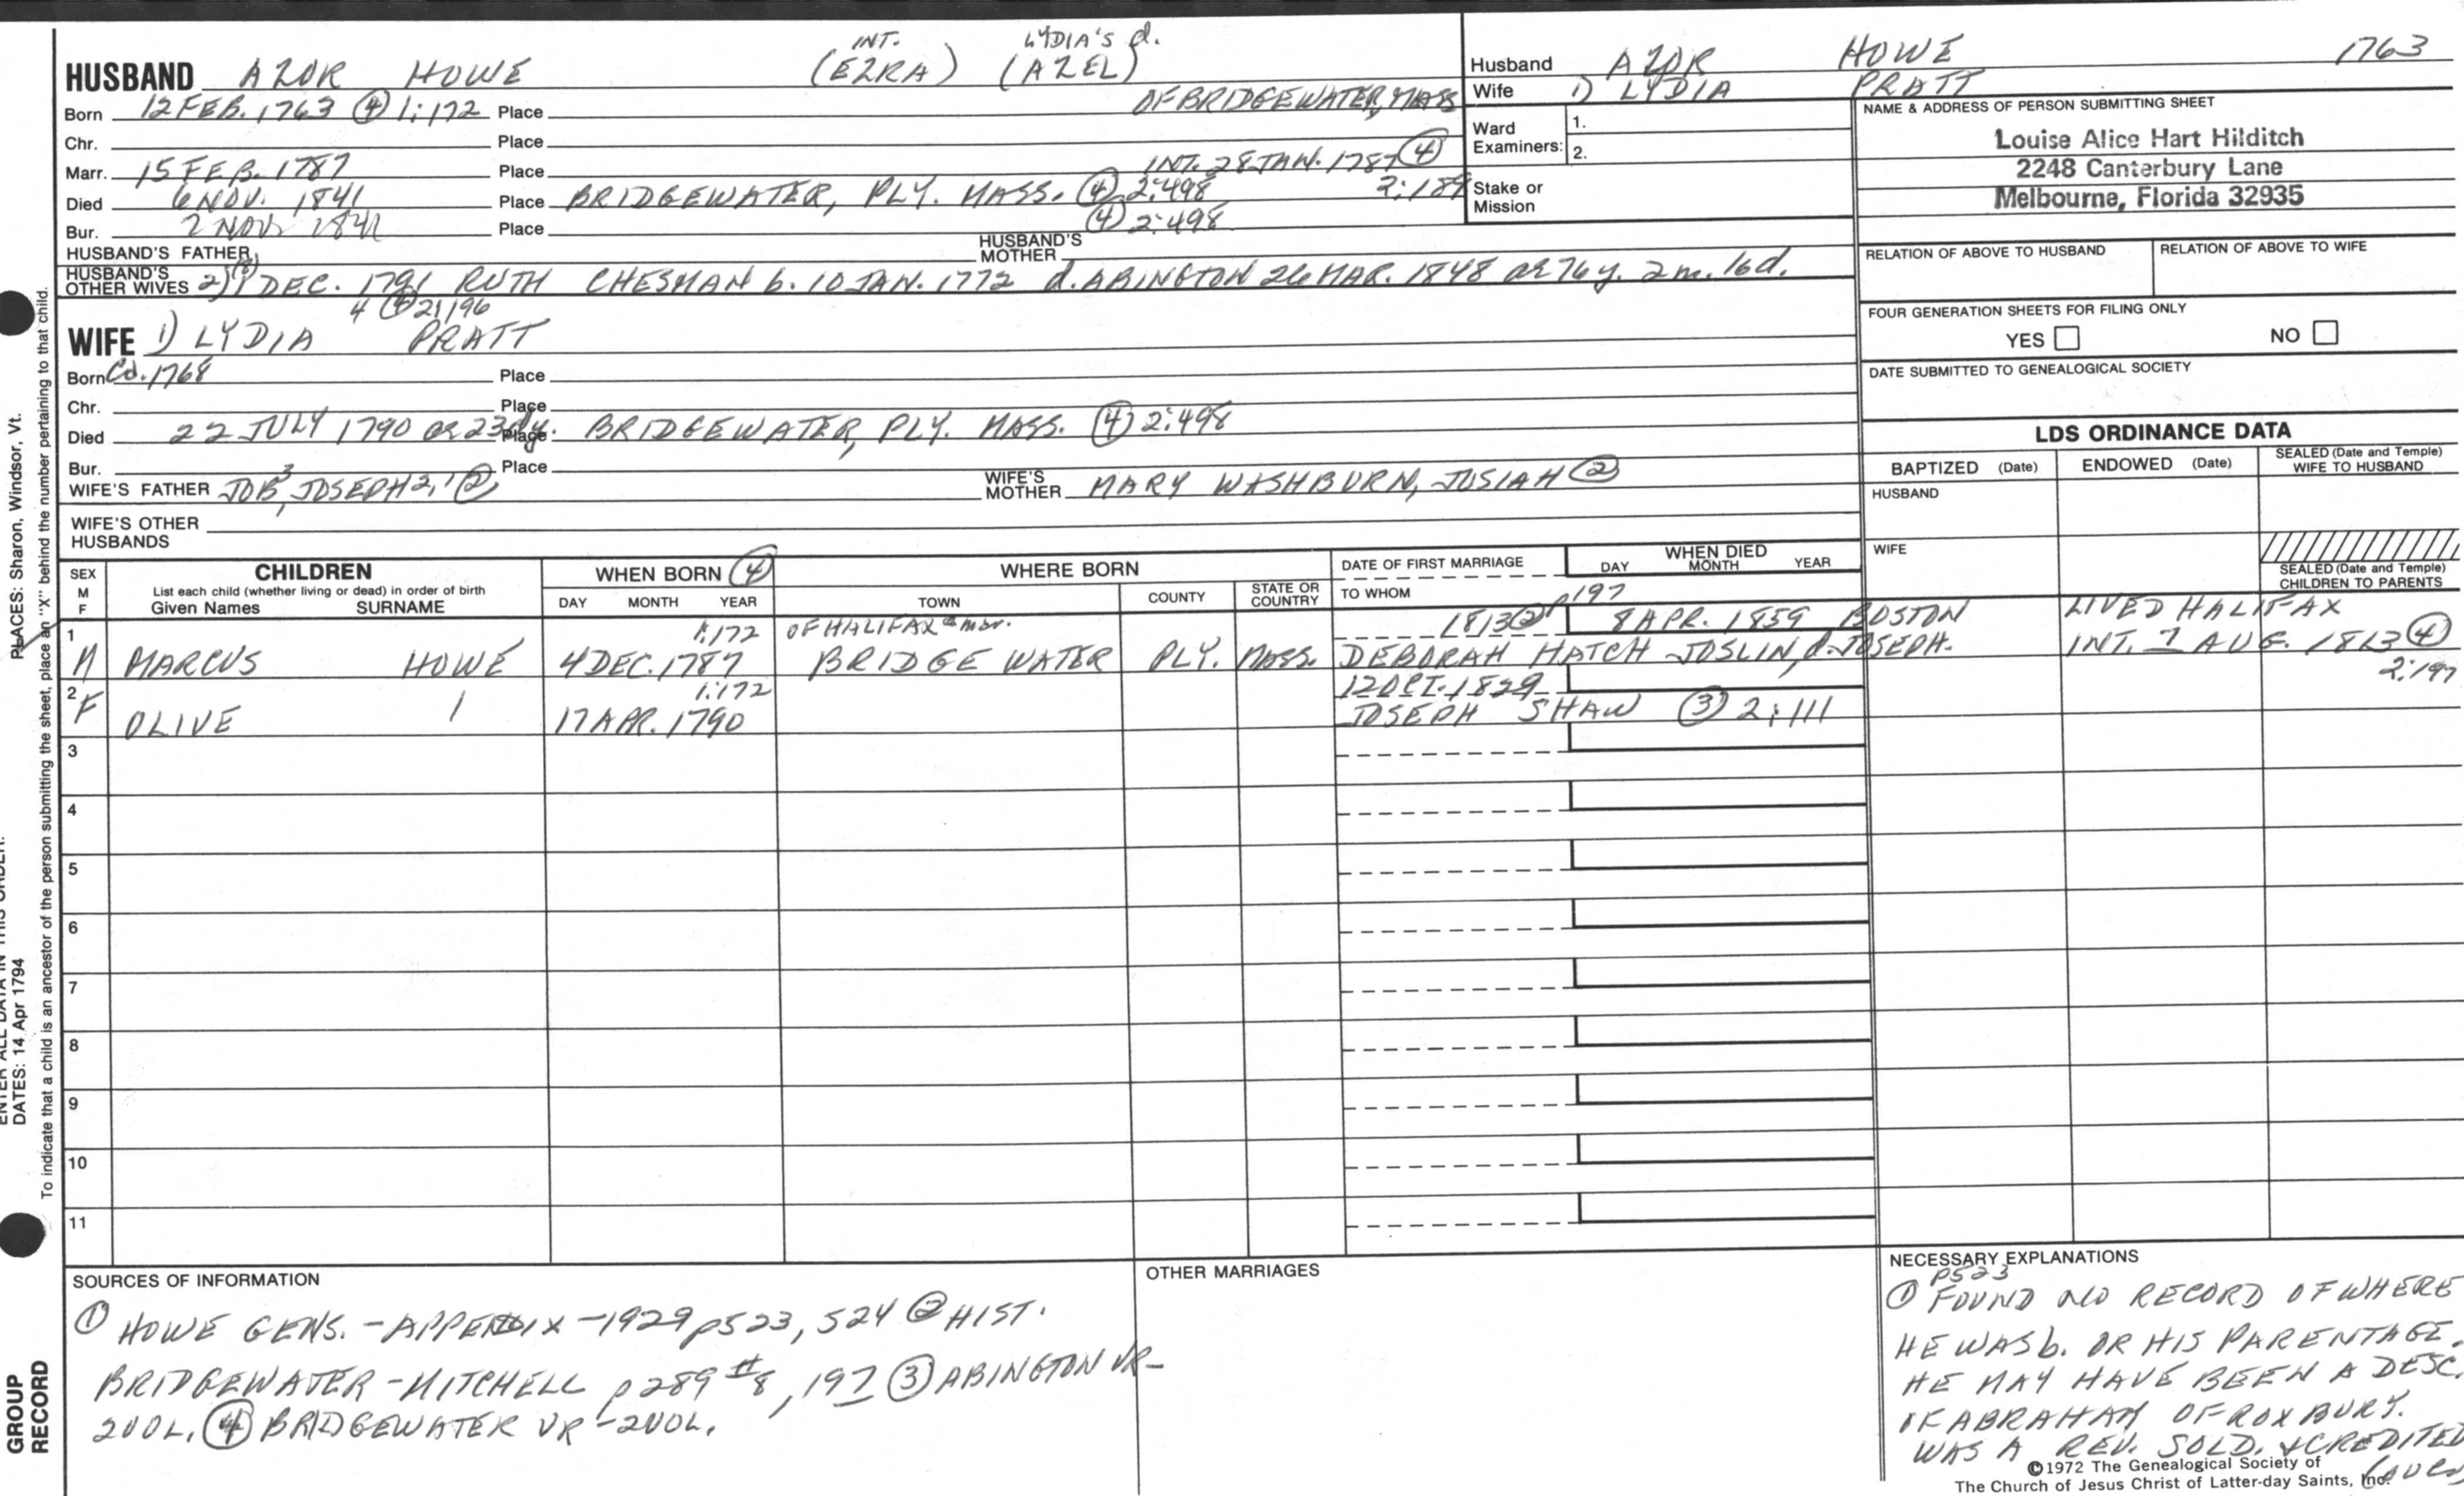 INT. LYDIA'S d.
HUSBAND AZOR HOWE (EZRA) (AZEL)
Born 12 FEB. 1763 ④ 1:172 Place OF BRIDGEWATER, MASS
Chr. Place
Marr. 15 FEB. 1787 Place INT. 28 JAN. 1787 ④ 2:189
Died 6 NOV. 1841 Place BRIDGEWATER, PLY. MASS. ④ 2:498
Bur. 2 NOV. 1841 Place ④ 2:498
HUSBAND'S FATHER HUSBAND'S MOTHER
HUSBAND'S OTHER WIVES 2) DEC. 1791 RUTH CHESMAN b. 10 JAN. 1772 d. ABINGTON 26 MAR. 1848 ae 76 y. 2 m. 16 d.
4 ④ 2:196
WIFE 1) LYDIA PRATT
Born Ca. 1768 Place
Chr. Place
Died 22 JULY 1790 ae 23d y. Place BRIDGEWATER, PLY. MASS. ④ 2:498
Bur. Place
WIFE'S FATHER JOB³, JOSEPH 2, 1 ② WIFE'S MOTHER MARY WASHBURN, JOSIAH ②
WIFE'S OTHER HUSBANDS
Husband AZOR HOWE 1763
Wife 1) LYDIA PRATT
Ward Examiners: 1.
2.
Stake or Mission
NAME & ADDRESS OF PERSON SUBMITTING SHEET
Louise Alice Hart Hilditch
2248 Canterbury Lane
Melbourne, Florida 32935
RELATION OF ABOVE TO HUSBAND RELATION OF ABOVE TO WIFE
FOUR GENERATION SHEETS FOR FILING ONLY
YES NO
DATE SUBMITTED TO GENEALOGICAL SOCIETY
LDS ORDINANCE DATA
BAPTIZED (Date) ENDOWED (Date) SEALED (Date and Temple) WIFE TO HUSBAND
HUSBAND
WIFE
SEALED (Date and Temple) CHILDREN TO PARENTS
SEX M F
CHILDREN
List each child (whether living or dead) in order of birth
Given Names SURNAME
WHEN BORN ④
DAY MONTH YEAR
WHERE BORN
TOWN COUNTY STATE OR COUNTRY
DATE OF FIRST MARRIAGE
TO WHOM
WHEN DIED
DAY MONTH YEAR
1 1:172 OF HALIFAX 1813 ② p197 8 APR. 1859 BOSTON LIVED HALIFAX
M MARCUS HOWE 4 DEC. 1787 BRIDGEWATER PLY. MASS. DEBORAH HATCH JOSLIN, d. JOSEPH. INT. 7 AUG. 1813 ④
2:197
2 1:172 12 OCT. 1829
F OLIVE 17 APR. 1790 JOSEPH SHAW ③ 2:111
3
4
5
6
7
8
9
10
11
SOURCES OF INFORMATION
① HOWE GENS. - APPENDIX - 1929 p523, 524 ② HIST.
BRIDGEWATER - MITCHELL p289 #8, 197 ③ ABINGTON VR -
2 VOL. ④ BRIDGEWATER VR - 2 VOL.
OTHER MARRIAGES
NECESSARY EXPLANATIONS
p523
① FOUND NO RECORD OF WHERE
HE WAS b. OR HIS PARENTAGE.
HE MAY HAVE BEEN A DESC.
OF ABRAHAM OF ROXBURY.
WAS A REV. SOLD. & CREDITED
©1972 The Genealogical Society of
The Church of Jesus Christ of Latter-day Saints, Inc.
PLACES: Sharon, Windsor, Vt.
To indicate that a child is an ancestor of the person submitting the sheet, place an "X" behind the number pertaining to that child.
ENTER ALL DATA IN THIS ORDER:
DATES: 14 Apr 1794
GROUP
RECORD